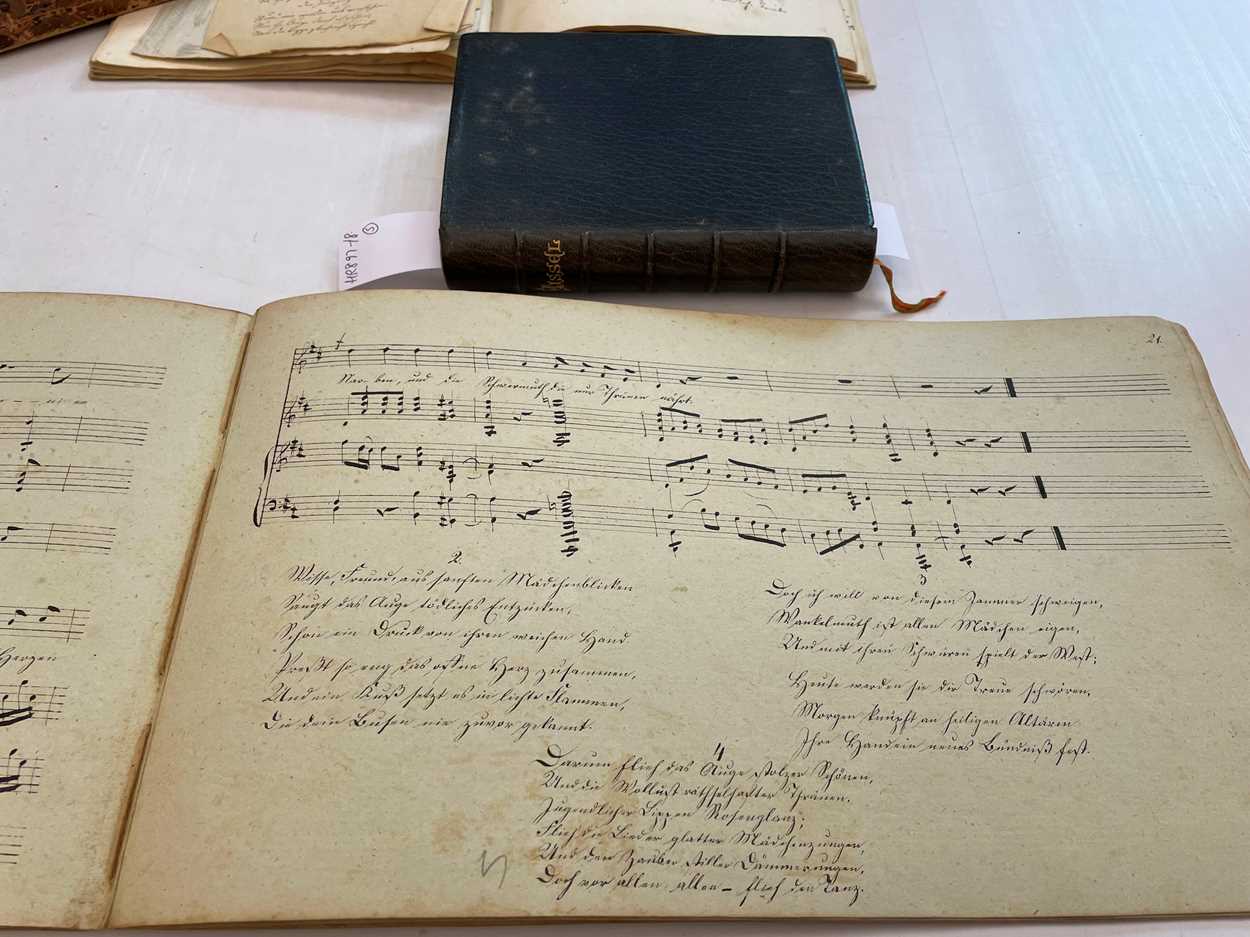 HR897-18
5
MUSSET
21.
Narben, und die Schwermuth die nur Thränen nährt.
Herzen
2.
Wisse, Freund, aus sanften Mädchenblicken
Saugt das Auge tödliches Entzücken,
Schon ein Druck von ihren weichen Hand
Preßt so eng das offne Herz zusammen,
Und ein Kuß setzt es in lichte Flammen,
Die dein Busen nie zuvor gekannt.
3
Doch ich will von diesem Jammer schweigen,
Wankelmuth ist allen Mädchen eigen,
Und mit ihren Schwüren spielt der West;
Heute werden sie dir Treue schwören,
Morgen knüpft an heiligen Altären
Ihre Hand ein neues Bündniß fest.
4
Darum flieh das Auge stolzer Schönen,
Und die Wollust räthselhafter Thränen,
Jugendlicher Lippen Rosenglanz;
Flieh die Lieder glatter Mädchenzungen,
Und den Zauber stiller Dämmerungen,
Doch vor allen, allen – flieh den Tanz.